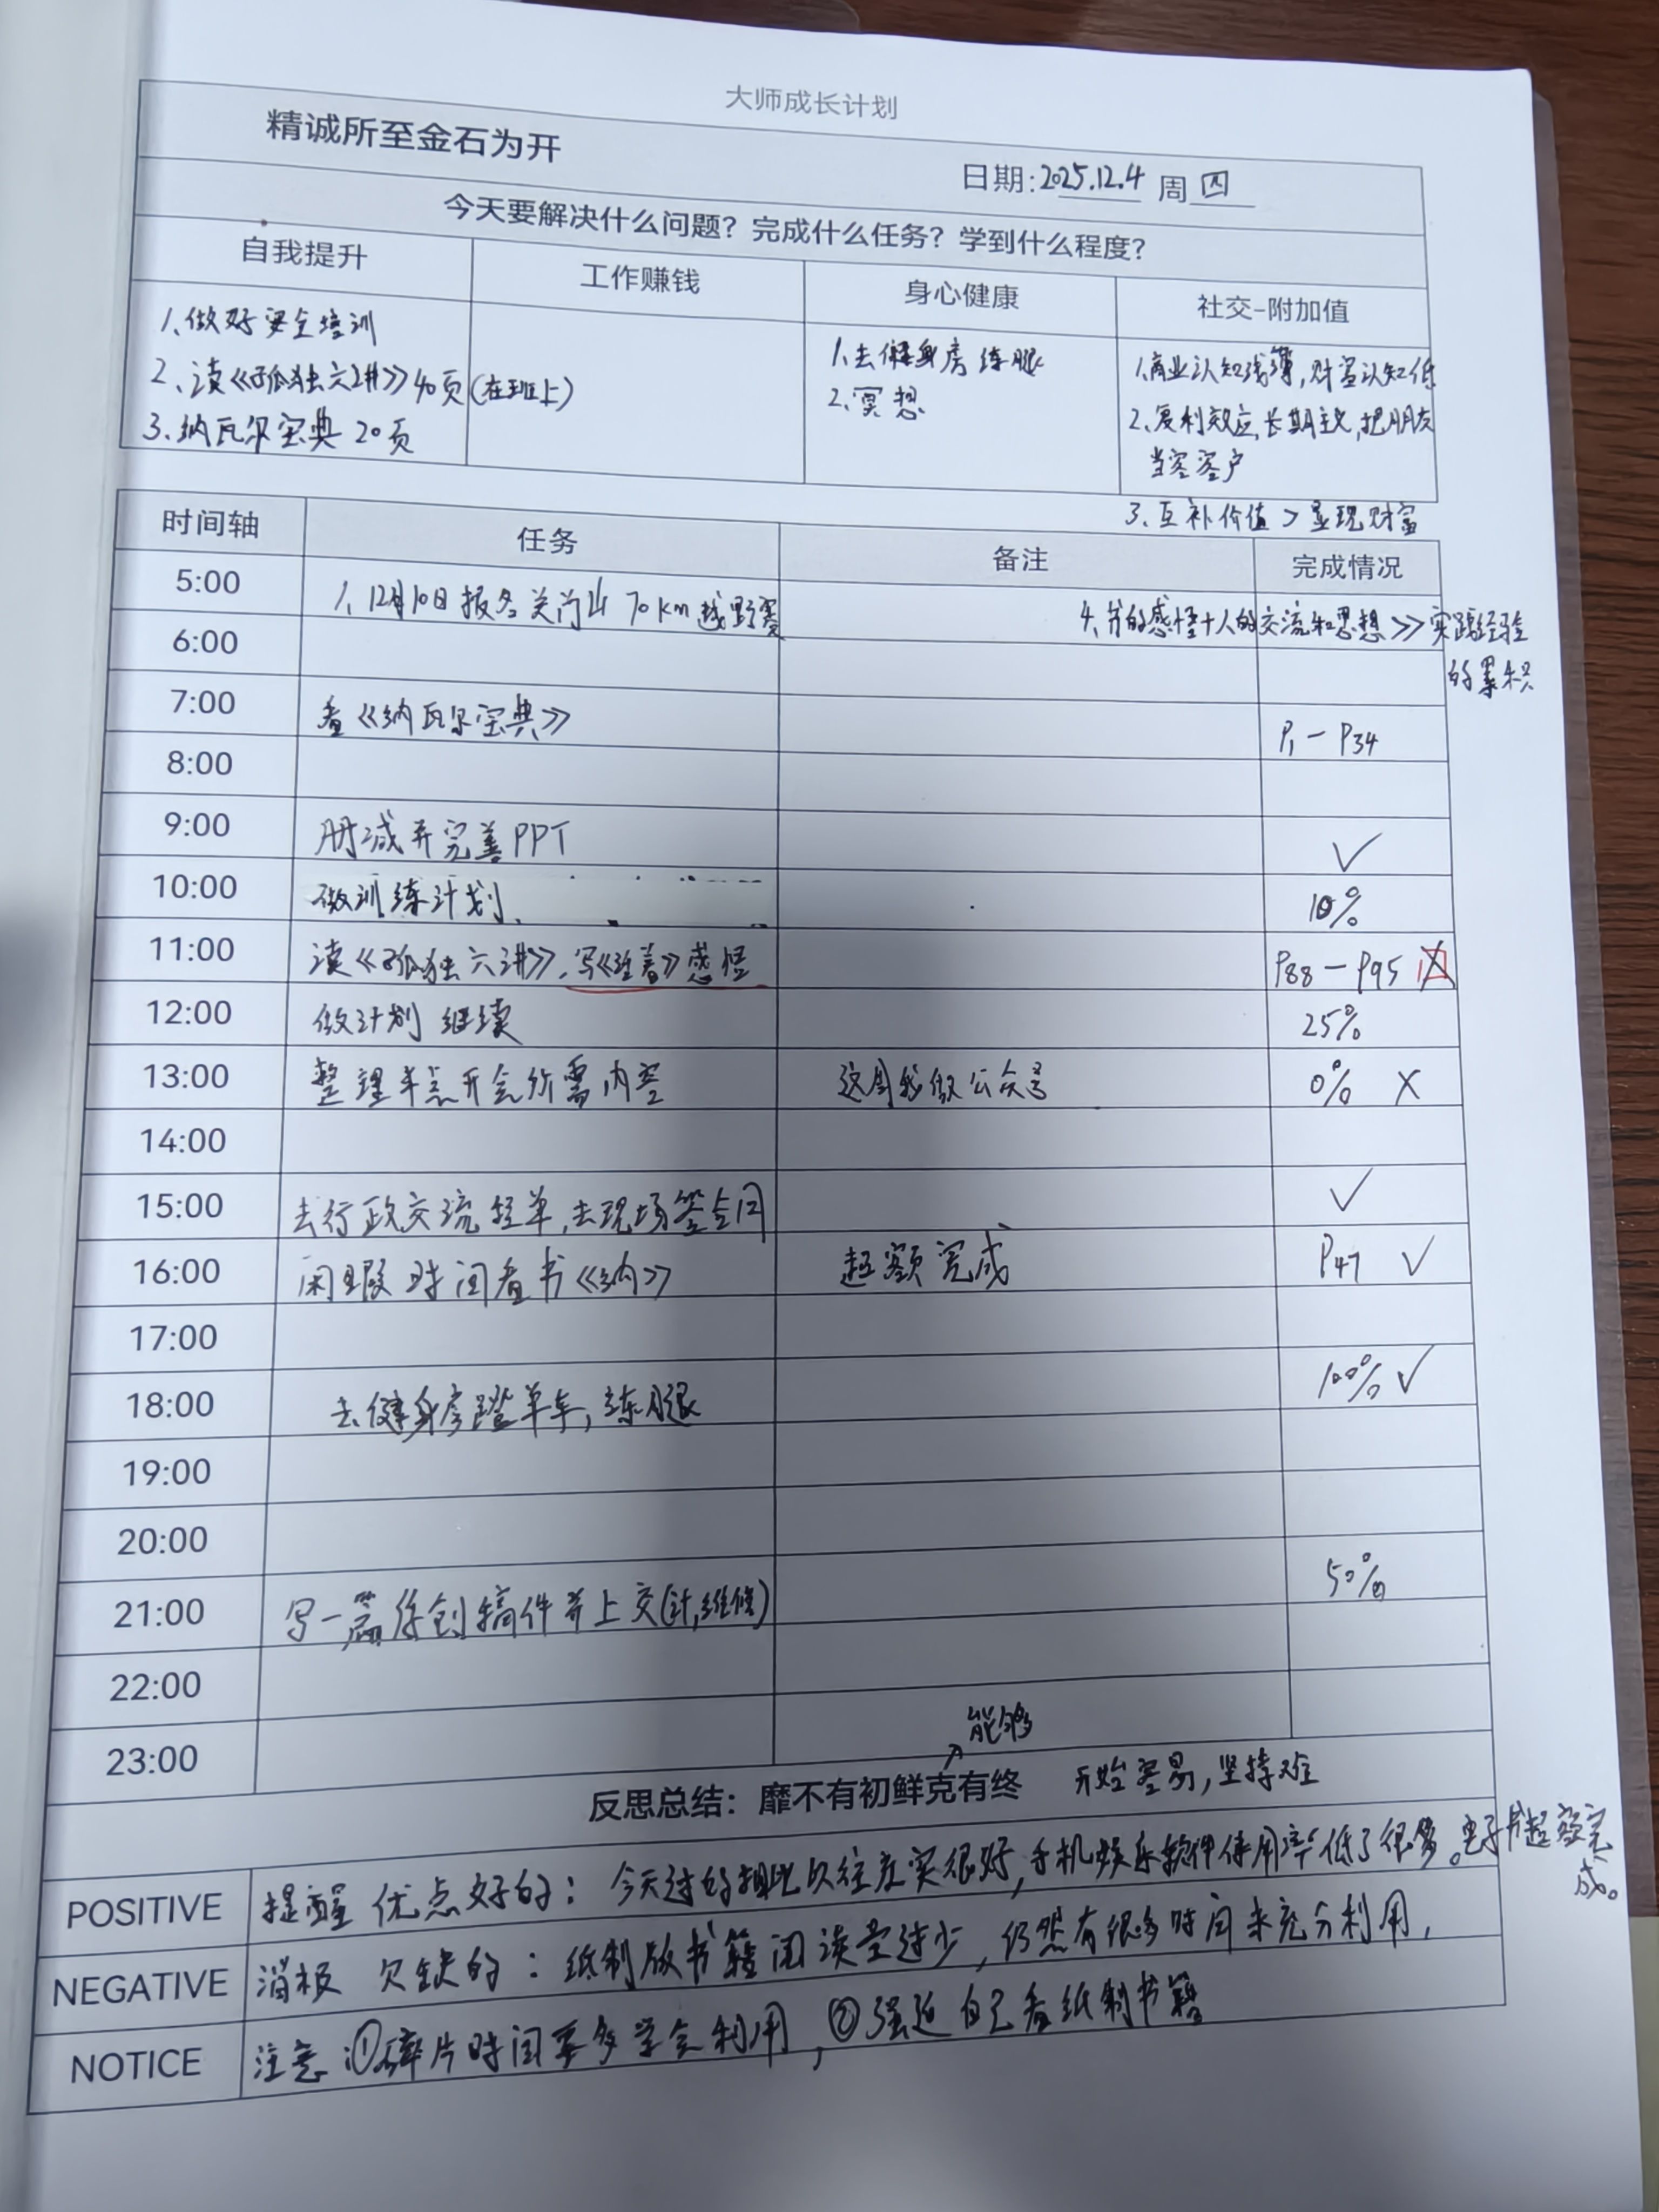 大师成长计划
精诚所至金石为开
日期:2025.12.4 周 四
今天要解决什么问题？完成什么任务？学到什么程度？
自我提升 工作赚钱 身心健康 社交-附加值
1、做好安全培训
2、读《孤独六讲》40页(在班上)
3、纳瓦尔宝典 20页
1、去健身房练腿
2、冥想
1、商业认知浅薄,财富认知低
2、复利效应,长期主义,把朋友
当客客户
3、互补价值 > 显现财富
时间轴 任务 备注 完成情况
5:00 1、12月10日报名关门山 70km越野赛
4、书的感悟+人的交流和思想>>实践经验
的累积
6:00
7:00 看《纳瓦尔宝典》 P1-P34
8:00
9:00 删减并完善PPT ✓
10:00 做训练计划、 10%
11:00 读《孤独六讲》、写《活着》感悟 P88-P95 ☒
12:00 做计划 继续 25%
13:00 整理半点开会所需内容 这周我做公众号 0% ×
14:00
15:00 去行政交流轻单,去现场签合同 ✓
16:00 闲暇时间看书《纳》 超额完成 P47 ✓
17:00
18:00 去健身房蹬单车,练腿 100% ✓
19:00
20:00
21:00 写一篇原创稿件并上交(计,维修) 50%
22:00
23:00
能够
反思总结：靡不有初鲜克有终 开始容易,坚持难
POSITIVE 提醒 优点好的：今天过的相比以往充实很好,手机娱乐软件使用率低了很多。电子书超额完
成。
NEGATIVE 消极 欠缺的：纸制版书籍阅读量过少,仍然有很多时间未充分利用,
NOTICE 注意:①碎片时间要多学会利用,②强迫自己看纸制书籍